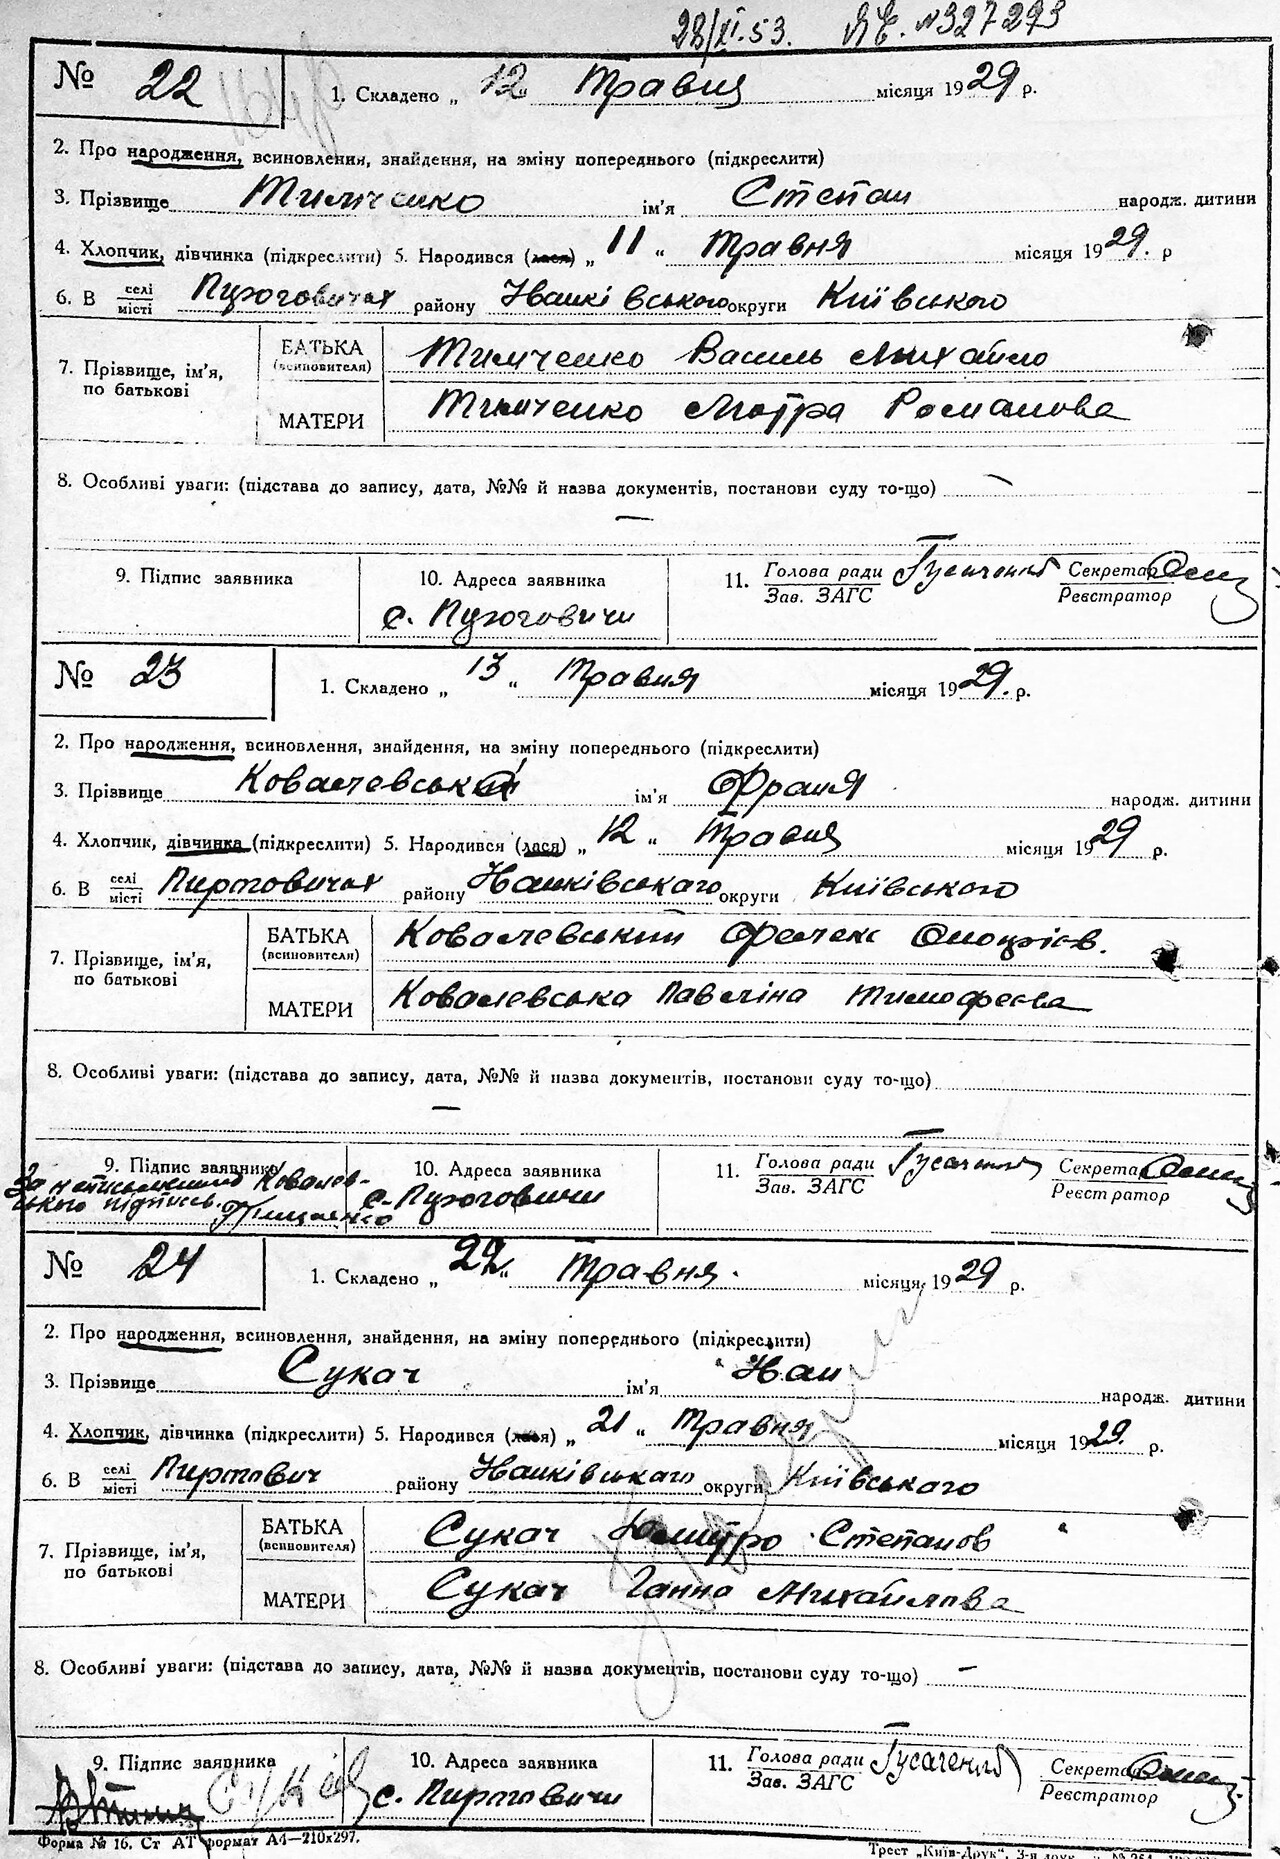 28/XI.53. ЯЄ. №327293
№ 22
1. Складено „ 12 " Травня місяця 1929 р.
2. Про народження, всиновлення, знайдення, на зміну попереднього (підкреслити)
3. Прізвище Тимченко ім'я Степан народж. дитини
4. Хлопчик, дівчинка (підкреслити) 5. Народився (лася) „ 11 " Травня місяця 1929. р
6. В селі місті району Іванківського округи Київського
7. Прізвище, ім'я, по батькові
БАТЬКА (всиновителя) Тимченко Василь Михайло
МАТЕРИ Тимченко Мотря Романова
8. Особливі уваги: (підстава до запису, дата, №№ й назва документів, постанови суду то-що) —
—
9. Підпис заявника
10. Адреса заявника
с. Пухоговичи
11. Голова ради Зав. ЗАГС Секретар Реєстратор
№ 23
1. Складено „ 13 " Травня місяця 1929. р.
2. Про народження, всиновлення, знайдення, на зміну попереднього (підкреслити)
3. Прізвище ім'я Франя народж. дитини
4. Хлопчик, дівчинка (підкреслити) 5. Народився (лася) „ 12 " Травня місяця 1929 р.
6. В селі місті району Іванківського округи Київського
7. Прізвище, ім'я, по батькові
БАТЬКА (всиновителя) Ковалевський
МАТЕРИ Ковалевська Павліна Тимофеєва
8. Особливі уваги: (підстава до запису, дата, №№ й назва документів, постанови суду то-що)
—
9. Підпис заявника
За неписьменного Ковалев-
ського підпись.
10. Адреса заявника
с. Пухоговичи
11. Голова ради Зав. ЗАГС Секретар Реєстратор
№ 24
1. Складено „ 22 " Травня. місяця 1929 р.
2. Про народження, всиновлення, знайдення, на зміну попереднього (підкреслити)
3. Прізвище Сукач ім'я Іван народж. дитини
4. Хлопчик, дівчинка (підкреслити) 5. Народився (лася) „ 21 " Травня місяця 1929. р.
6. В селі місті Пиртович району Іванківського округи Київського
7. Прізвище, ім'я, по батькові
БАТЬКА (всиновителя) Сукач Дмитро Степанов
МАТЕРИ Сукач Ганна Михайлова
8. Особливі уваги: (підстава до запису, дата, №№ й назва документів, постанови суду то-що) —
9. Підпис заявника
10. Адреса заявника
с. Пиртовичи
11. Голова ради Зав. ЗАГС Секретар Реєстратор
Форма № 16. Ст АТ формат А4—210х297.
Трест „Київ-Друк", 3-я друк.